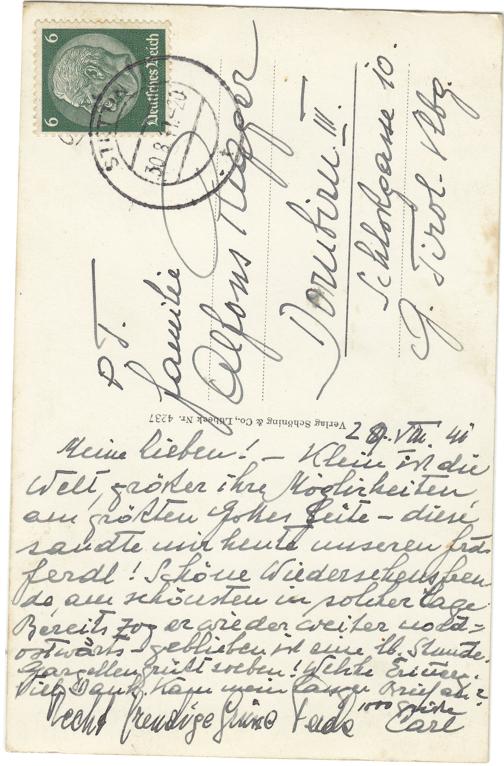 6 6
Deutsches Reich
30.8.41-20
P. T.
Familie
Alfons
Dornbirn III.
Schloßgasse 10.
G. Tirol-Vbg.
Verlag Schöning & Co., Lübeck Nr. 4237
VIII. 41
Meine Lieben! – Klein ist die
Welt, größer ihre Möglichkeiten,
am größten Gottes Güte – diese
sandte mir heute unseren
ferdl! Schöne Wiedersehensfreu
de, am schönsten in solcher Lage.
Bereits zog er wieder weiter nord-
ostwärts – geblieben ist eine lb. Stunde.
Gargellen grüßt soeben! Welche
Viel Dank. Kam mein langer Brief an?
Recht freudige Grüße 1000 Grüße Carl